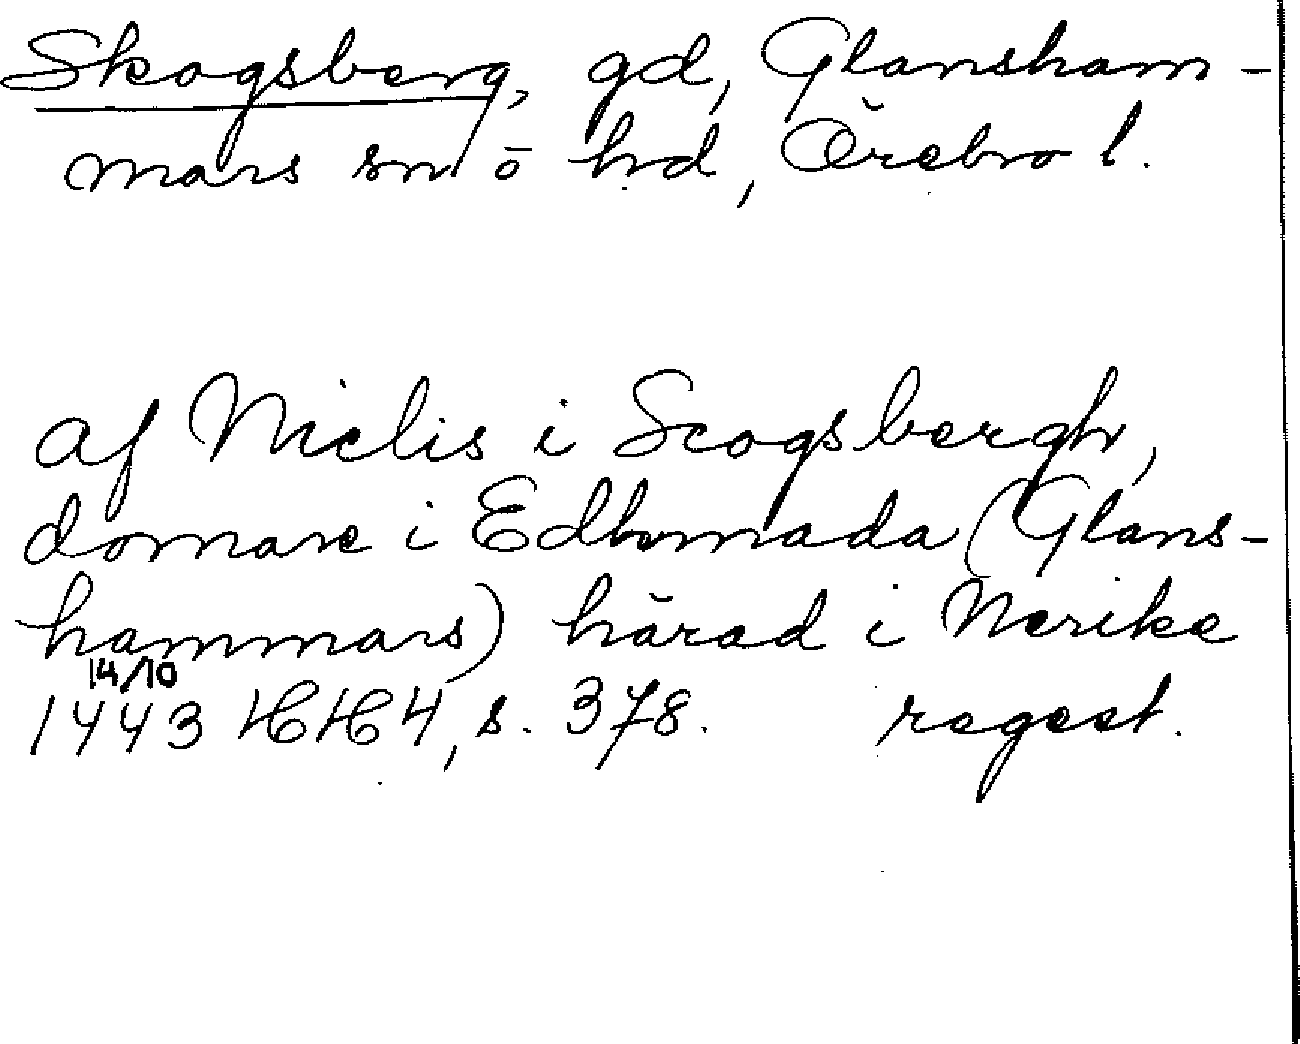 Skogsberg, gd, Glansham-
mars sn ō hd, Örebro l.
af Niclis i Scogsbergh,
domare i Edhmada (Glans-
hammars) härad i Nerike
14/10
1443 HH 4, s. 378. regest.